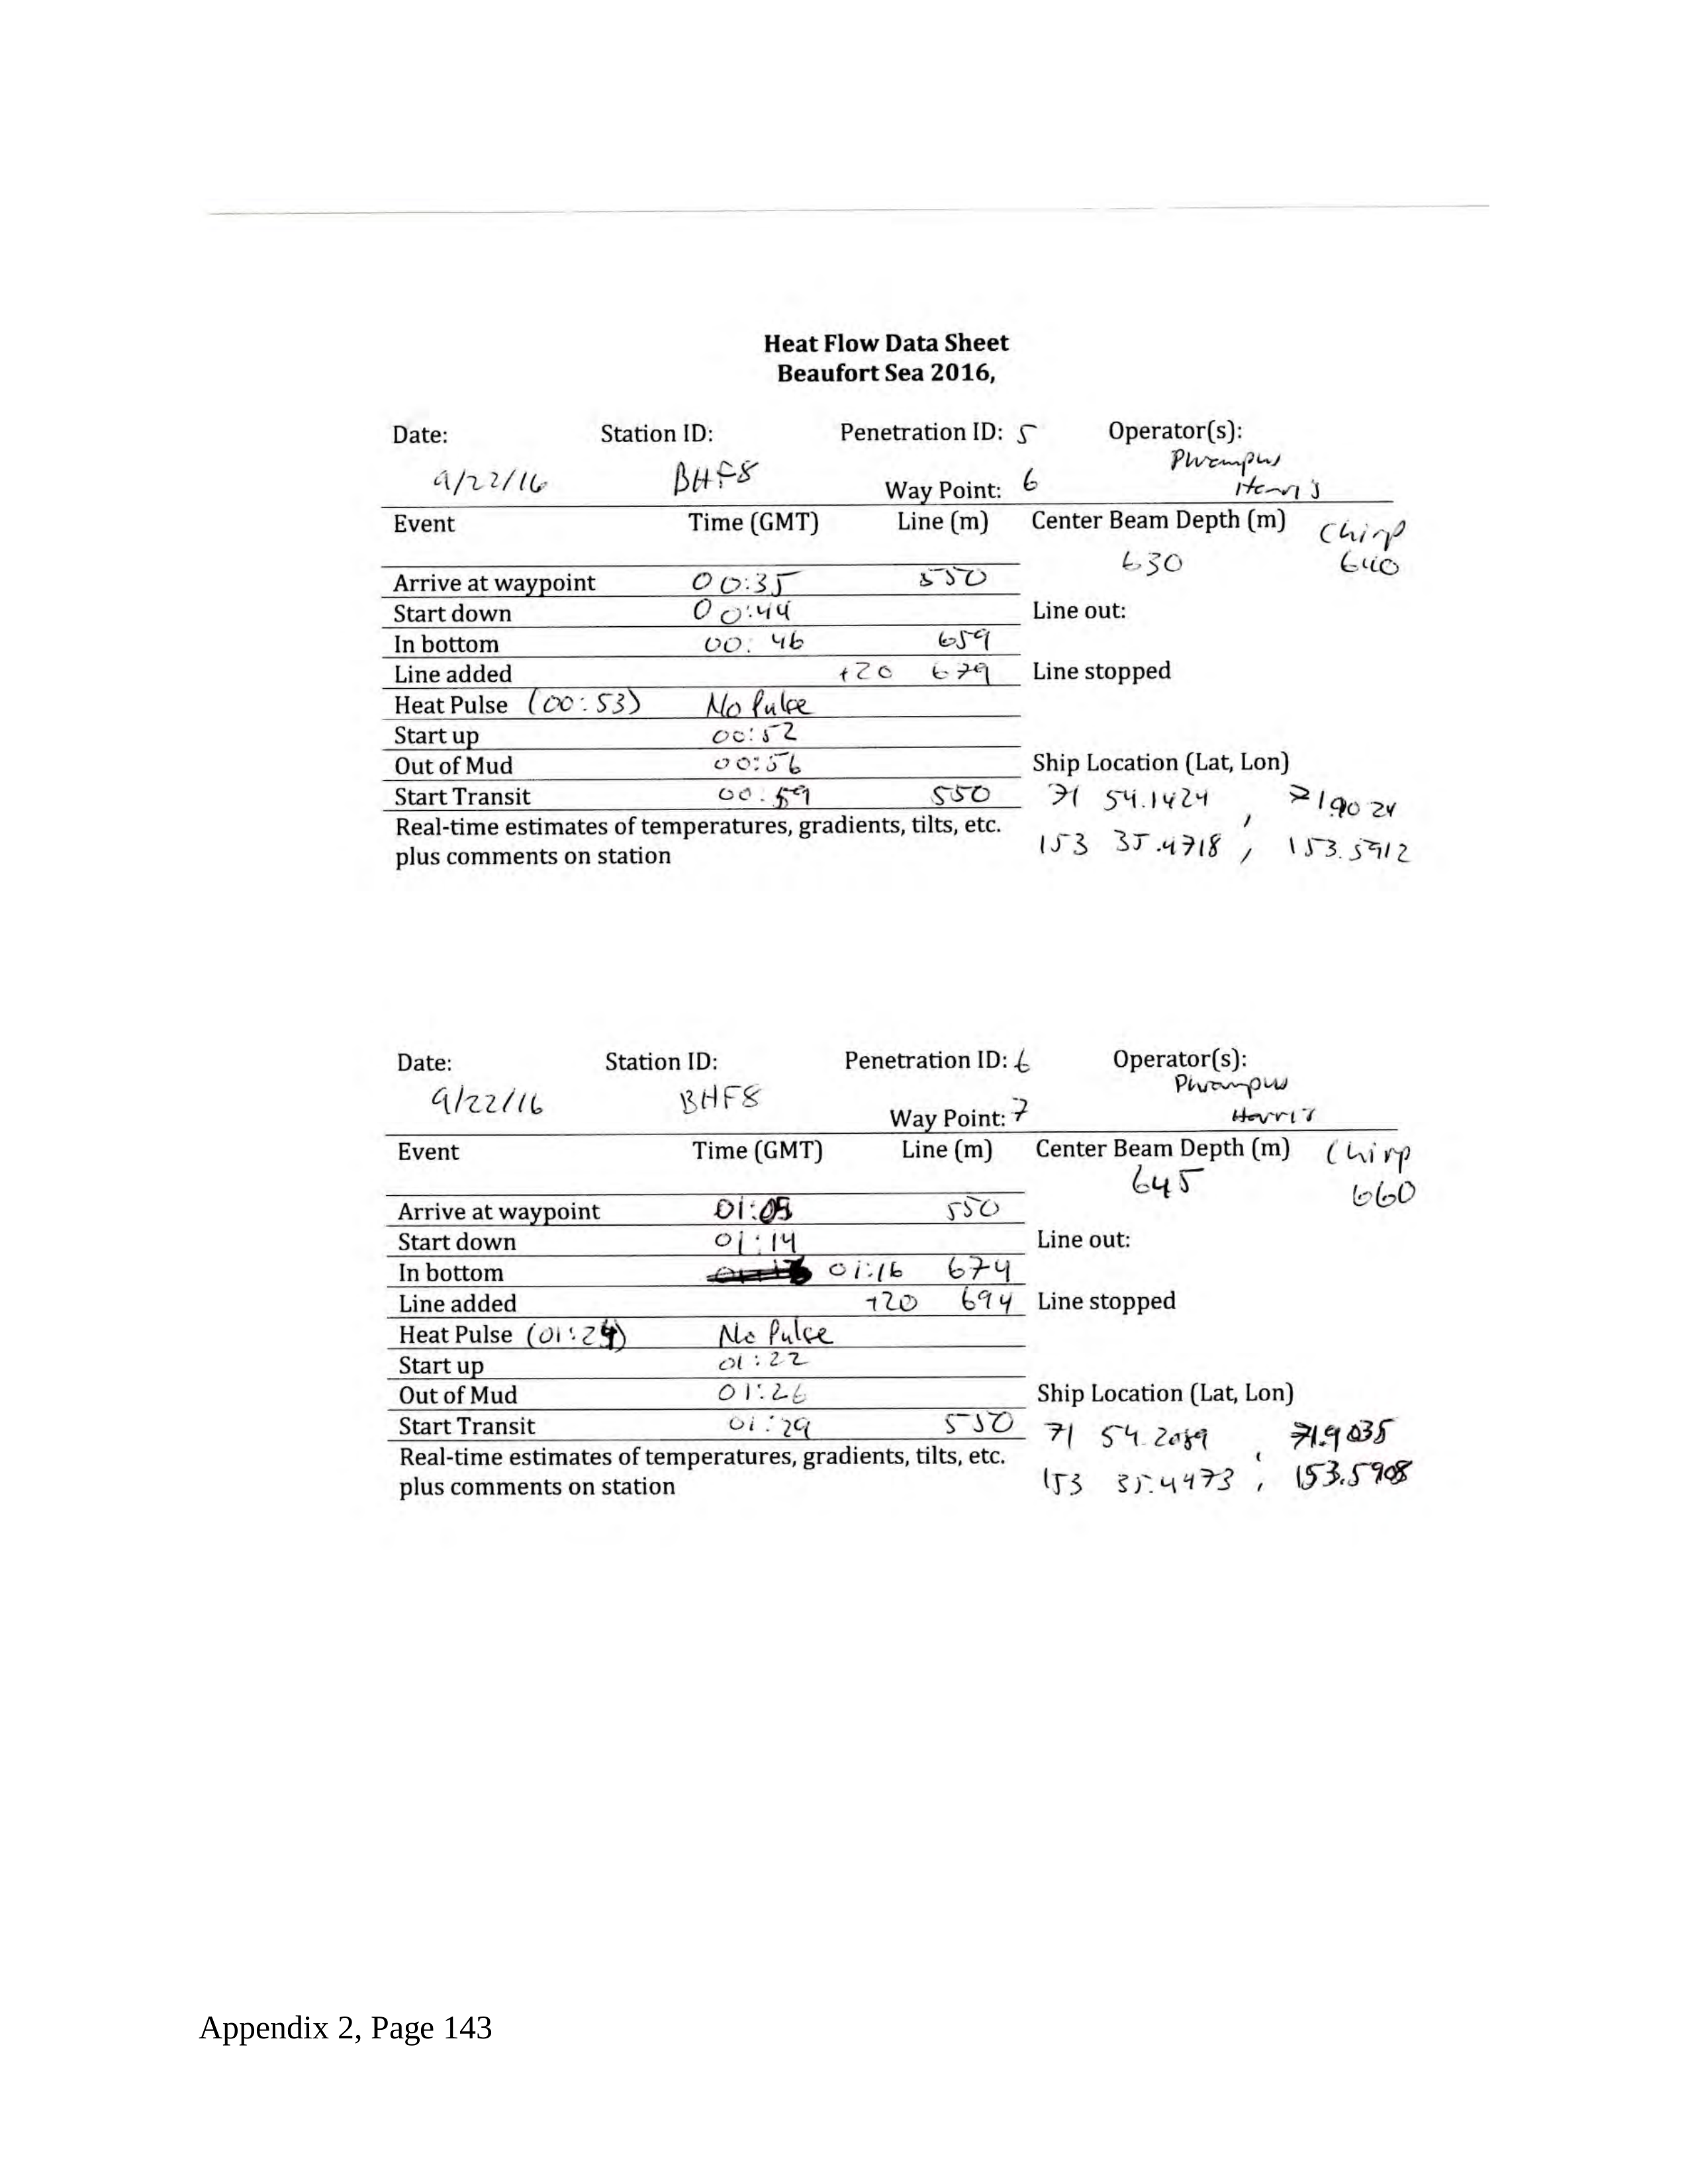 Heat Flow Data Sheet
Beaufort Sea 2016,
Date: Station ID: Penetration ID: 5 Operator(s):
9/22/16 BHF8 Way Point: 6
Harris
Event Time (GMT) Line (m) Center Beam Depth (m) Chirp
630 640
Arrive at waypoint 00:35 550
Start down 00:44 Line out:
In bottom 00:46 659
Line added +20 679 Line stopped
Heat Pulse (00:53) No Pulse
Start up 00:52
Out of Mud 00:56 Ship Location (Lat, Lon)
Start Transit 00:59 550 71 54.1424 , 71.9024
Real-time estimates of temperatures, gradients, tilts, etc.
153 35.4718 , 153.5912
plus comments on station
Date: Station ID: Penetration ID: 6 Operator(s):
9/22/16 BHF8 Way Point: 7
Harris
Event Time (GMT) Line (m) Center Beam Depth (m) Chirp
645 660
Arrive at waypoint 01:09 550
Start down 01:14 Line out:
In bottom 01:16 674
Line added +20 694 Line stopped
Heat Pulse (01:24) No Pulse
Start up 01:22
Out of Mud 01:26 Ship Location (Lat, Lon)
Start Transit 01:29 550 71 54.2089 , 71.9035
Real-time estimates of temperatures, gradients, tilts, etc.
153 35.4473 , 153.5908
plus comments on station
Appendix 2, Page 143